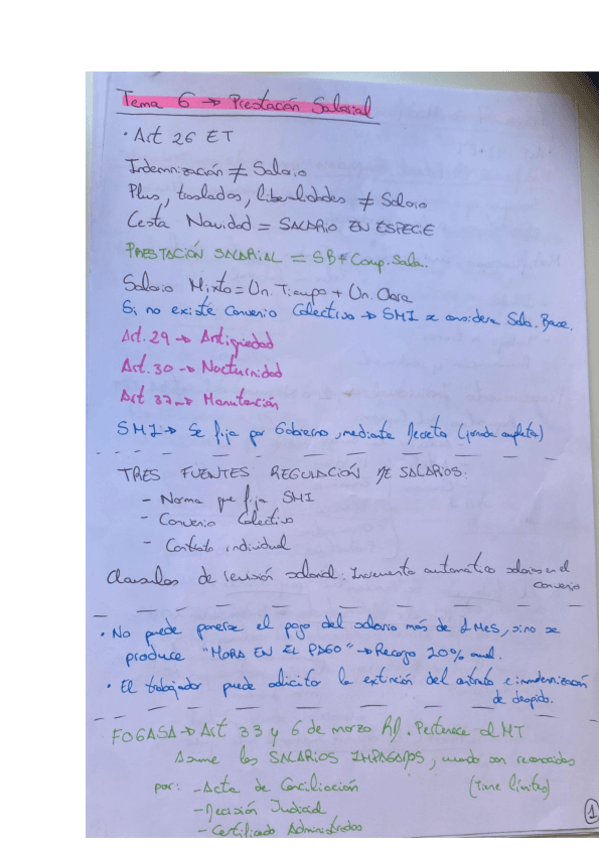 Tema 6 → Prestación Salarial
• Art 26 ET
Indemnización ≠ Salario
Plus, traslados, liberalidades ≠ Salario
Cesta Navidad = SALARIO EN ESPECIE
PRESTACIÓN SALARIAL = SB + Comp. Sala.
Salario Mixto = Un. Tiempo + Un. Obra
Si no existe Convenio Colectivo → SMI se considera Sala. Base.
Art. 29 → Antigüedad
Art. 30 → Nocturnidad
Art 37 → Manutención
SMI → Se fija por Gobierno, mediante Decreto (jornada completa)
TRES FUENTES REGULACIÓN DE SALARIOS:
- Norma que fija SMI
- Convenio Colectivo
- Contrato individual
Clausulas de revisión salarial: Incremento automático salarios en el
convenio
• No puede ponerse el pago del salario más de 1 Mes, sino se
produce "MORA EN EL PAGO" → Recargo 20% anual.
• El trabajador puede solicitar la extinción del contrato e indemnización
de despido.
FOGASA → Art 33 y 6 de marzo RD. Pertenece al MT
Asume los SALARIOS IMPAGADOS, cuando son reconocidos
por: - Acta de Conciliación (Tiene límites)
- Decisión Judicial
- Certificado Administrados
1